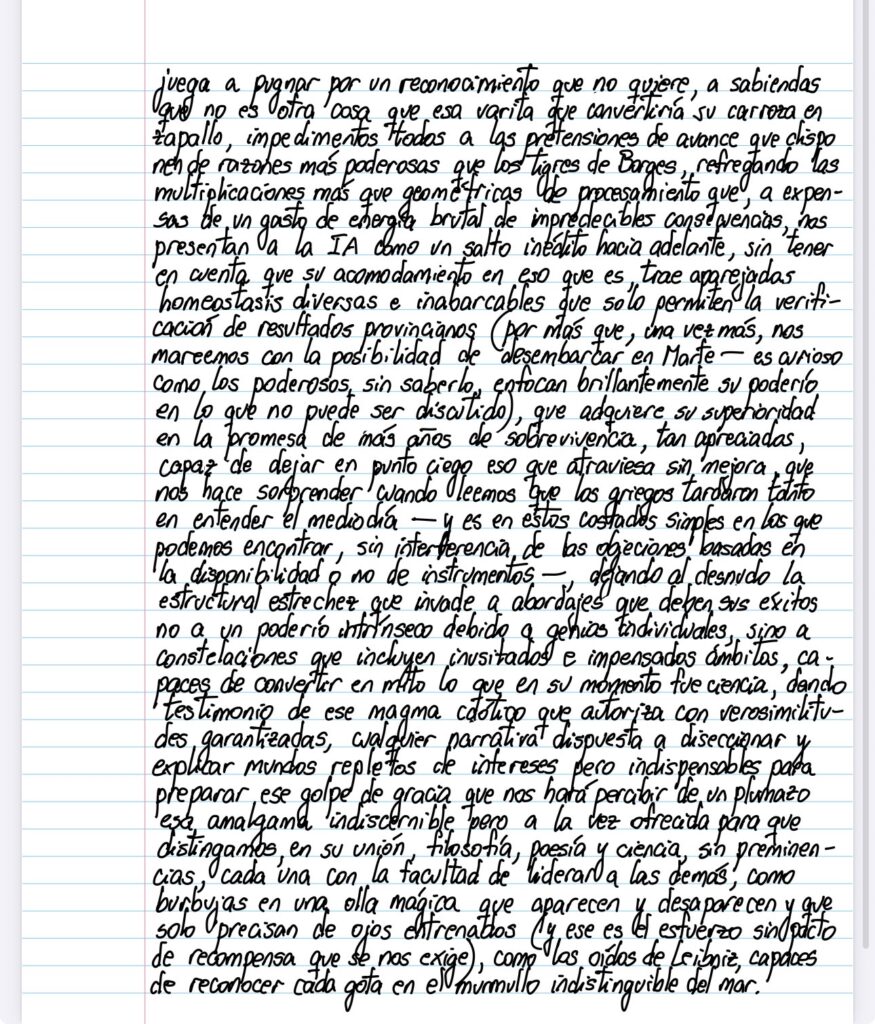 juega a pugnar por un reconocimiento que no quiere, a sabiendas
que no es otra cosa que esa varita que convertiría su carroza en
zapallo, impedimentos todos a las pretensiones de avance que dispo
nen de razones más poderosas que los tigres de Borges, refregando las
multiplicaciones más que geométricas de procesamiento que, a expen-
sas de un gasto de energía brutal de impredecibles consecuencias, nos
presentan a la IA como un salto inédito hacia adelante, sin tener
en cuenta que su acomodamiento en eso que es, trae aparejadas
homeostasis diversas e inabarcables que solo permiten la verifi-
cación de resultados provincianos (por más que, una vez más, nos
mareemos con la posibilidad de desembarcar en Marte — es curioso
como los poderosos, sin saberlo, enfocan brillantemente su poderío
en lo que no puede ser discutido), que adquiere su superioridad
en la promesa de más años de sobrevivencia, tan apreciadas,
capaz de dejar en punto ciego eso que atraviesa sin mejora, que
nos hace sorprender cuando leemos que los griegos tardaron tanto
en entender el mediodía — y es en estos costados simples en los que
podemos encontrar, sin interferencia, de las objeciones basadas en
la disponibilidad o no de instrumentos —, dejando al desnudo la
estructural estrechez que invade a abordajes que deben sus éxitos
no a un poderío intrínseco debido a genios individuales, sino a
constelaciones que incluyen inusitados e impensados ámbitos, ca-
paces de convertir en mito lo que en su momento fue ciencia, dando
testimonio de ese magma caótico que autoriza con verosimilitu-
des garantizadas, cualquier narrativa dispuesta a diseccionar y
explicar mundos repletos de intereses pero indispensables para
preparar ese golpe de gracia que nos hará percibir de un plumazo
esa amalgama indiscernible pero a la vez ofrecida para que
distingamos, en su unión, filosofía, poesía y ciencia, sin preminen-
cias, cada una con la facultad de liderar a las demás, como
burbujas en una olla mágica que aparecen y desaparecen y que
solo precisan de ojos entrenados (y ese es el esfuerzo sin pacto
de recompensa que se nos exige), como los oídos de Leibniz, capaces
de reconocer cada gota en el murmullo indistinguible del mar.